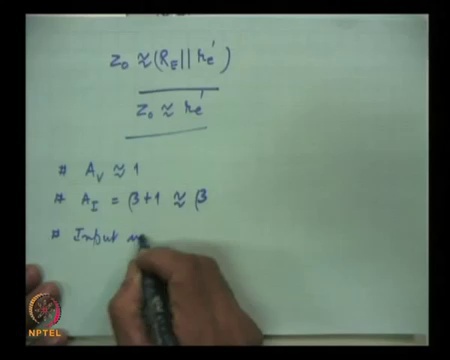 Z₀ ≈ (R_E || r_e')
Z₀ ≈ r_e'
# A_V ≈ 1
# A_I = β+1 ≈ β
# Input
NPTEL